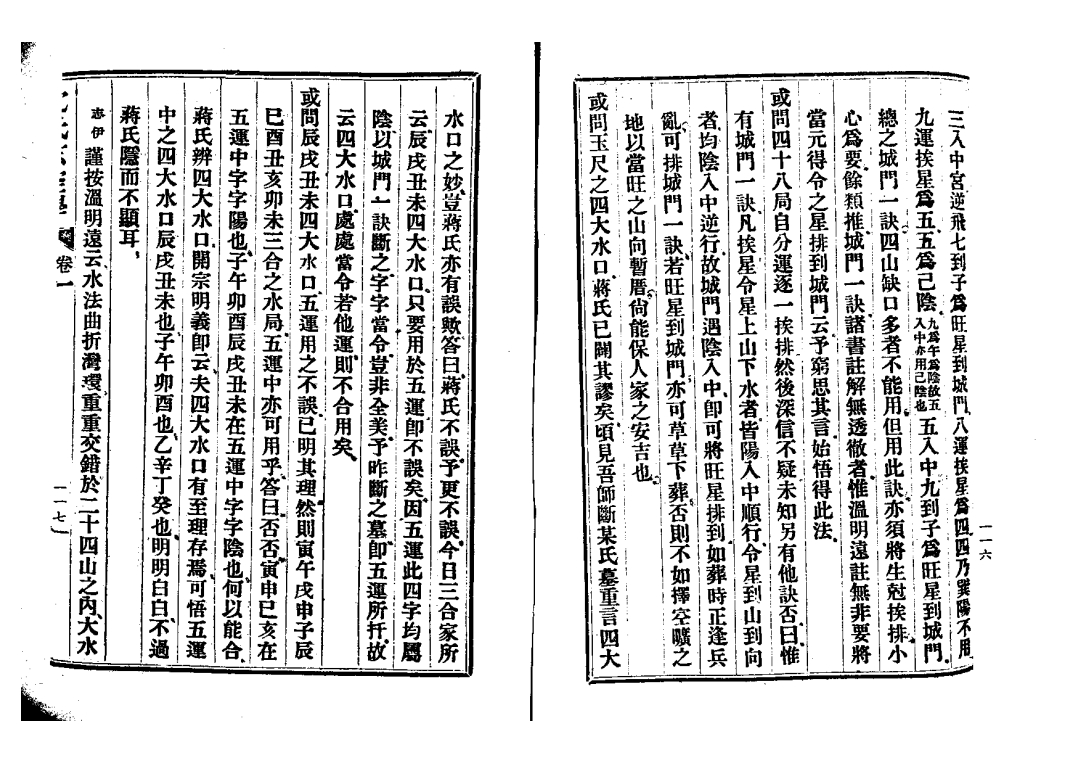 三入中宮逆飛七到子爲旺星到城門八運挨星爲四四乃巽陽不用
九運挨星爲五五爲己陰九爲午爲陰故五入中亦用己陰也五入中九到子爲旺星到城門
總之城門一訣四山缺口多者不能用但用此訣亦須將生尅挨排小
心爲要餘類推城門一訣諸書註解無透徹者惟溫明遠註無非要將
當元得令之星排到城門云予窮思其言始悟得此法
或問四十八局自分運逐一挨排然後深信不疑未知另有他訣否曰惟
有城門一訣凡挨星令星上山下水者皆陽入中順行令星到山到向
者均陰入中逆行故城門遇陰入中卽可將旺星排到如葬時正逢兵
亂可排城門一訣若旺星到城門亦可草草下葬否則不如擇空曠之
地以當旺之山向暫厝尙能保人家之安吉也
或問玉尺之四大水口蔣氏已闢其謬矣頃見吾師斷某氏墓重言四大
一一六
水口之妙豈蔣氏亦有誤歟答曰蔣氏不誤予更不誤今日三合家所
云辰戌丑未四大水口只要用於五運卽不誤矣因五運此四字均屬
陰以城門一訣斷之字字當令豈非全美予昨斷之墓卽五運所扦故
云四大水口處處當令若他運則不合用矣
或問辰戌丑未四大水口五運用之不誤已明其理然則寅午戌申子辰
巳酉丑亥卯未三合之水局五運中亦可用乎答曰否否寅申巳亥在
五運中字字陽也子午卯酉辰戌丑未在五運中字字陰也何以能合
蔣氏辨四大水口開宗明義卽云夫四大水口有至理存焉可悟五運
中之四大水口辰戌丑未也子午卯酉也乙辛丁癸也明明白白不過
蔣氏隱而不顯耳
志伊謹按溫明遠云水法曲折灣環重重交錯於二十四山之內大水
卷一
一一七